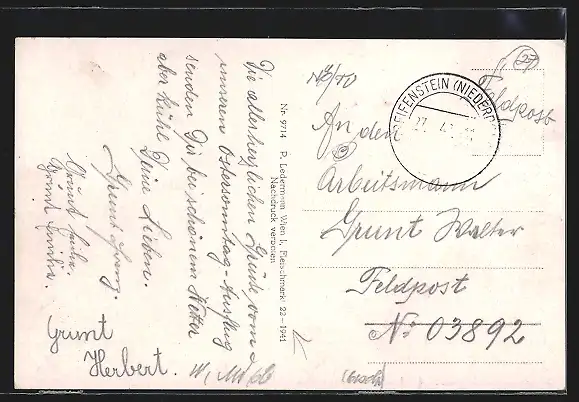 Die allerherzlichsten Grüße vom
unserem Ostersonntag-Ausflug
senden Dir bei schönem Wetter
aber kühl Deine Lieben.
Grunt
Grunt
Grunt
Grunt
Herbert.
Nr. 9714 P. Ledermann, Wien I, Fleischmarkt 22 - 1941
Nachdruck verboten
27
Feldpost
GREIFENSTEIN (NIEDERD
An den
Arbeitsmann
Grunt Walter
Feldpost
No 03892